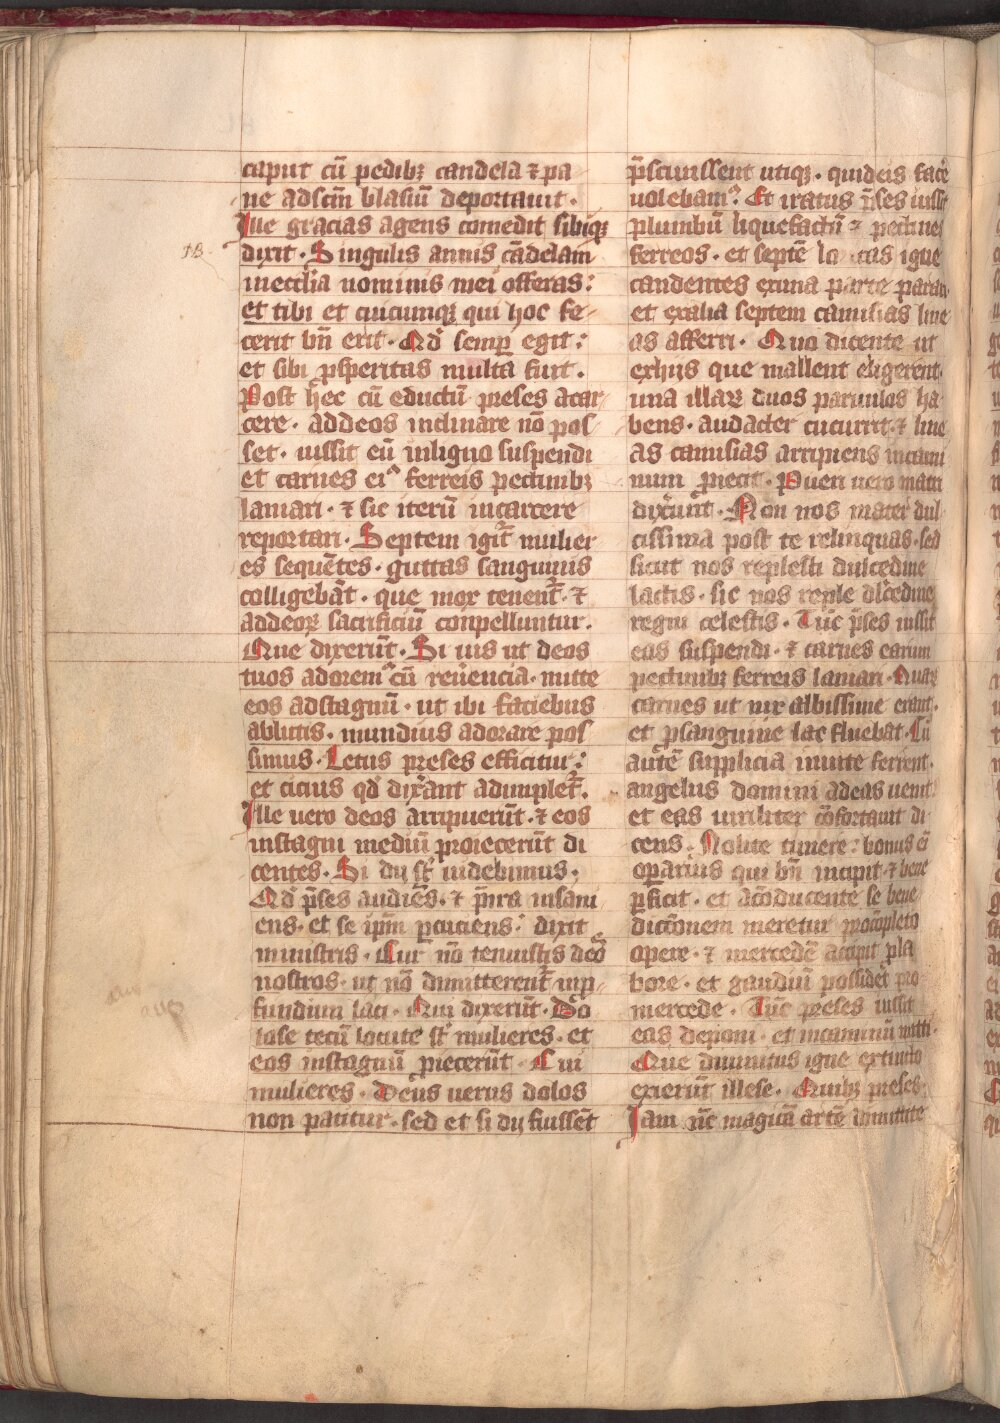 caput cū pedibꝫ candela ⁊ pa
ne adscm̄ blasiū deportauit.
Ille gracias agens comedit sibiqꝫ
dixit. Singulis annis cādelam
inecclīa nominis mei offeras:
et tibi et cuicumqꝫ qui hoc fe-
cerit bn̄ erit. Qd̓ semꝑ egit:
et sibi ꝓsperitas multa fuit.
Post hec cū eductū preses acar-
cere. addeos inclinare nō pos-
set. iussit eū inligno suspendi
et carnes eiꝰ ferreis pectinibꝫ
laniari. ⁊ sic iterū incarcere
reportari. Septem igit̄ mulier
es sequētes. guttas sanguinis
colligebāt. que mox tenent̄. ⁊
addeoꝝ sacrificiū conpelluntur.
Que dixerūt. Si uis ut deos
tuos adorem᷒ cū reu̓encia. mitte
eos adstagnū. ut ibi faciebus
ablutis. mundius adorare pos
simus. Letus preses efficitur:
et cicius qd̓ dixāt adimplet̄.
Ille uero deos arripuerūt. ⁊ eos
instagni mediū proiecerūt di
centes. Si dij st̄ uidebimus.
Qd̓ p̄ses audiēs. ⁊ p̄nira insani
ens. et se ip̄m ꝑcuciens: dixit
ministris. Cur nō tenuistis deos
nostros. ut nō dimitterent̄ inp
fundum laci. Qui dixerūt. Do
lose tecū locute st̄ mulieres. et
eos instagnū ꝓiecerūt. Cui
mulieres. Deus uerus dolos
non patitur. sed et si dij fuissēt
p̄sciuissent utiqꝫ. quideis face̓
uolebamꝰ. Et iratus p̄ses iussit
plumbū liquefactū ⁊ pectines
ferreos. et septē igne
candentes exuna parte parari
et exalia septem camisias line
as afferri. Quo dicente ut
exhijs que mallent eligerent.
una illaꝝ duos paruulos ha-
bens. audacter cucurrit. ⁊ line
as camisias arripiens incami
num ꝓiecit. Pueri uero matri
dixerūt. Non nos mater dul
cissima post te relinquas. sed
sicut nos replesti dulcedine
lactis. sic nos reple dl̓cedine
regni celestis. Tūc p̄ses iussit
eas suspendi. ⁊ carnes earum
pectinibꝫ ferreis laniari. Quaꝝ
carnes ut nix albissime erant.
et ꝓsanguine lac fluebat. Cū
autē supplicia inuite ferrent.
angelus domini adeas uenit
et eas uiriliter cōfortauit di
cens. Nolite timere: bonus eī
oꝑarius qui bn̄ incipit ⁊ bene
ꝑficit. et acōducente se bene
dictionem meretur ꝓcōpleto
opere. ⁊ mercedē accipit pla
bore. et gaudiū possidet pro
mercede. Tūc preses iussit
eas deponi. et incaminū mitti.
Que diuinitus igne extincto
exierūt illese. Quibꝫ preses.
Iam nc̄ magicā artē dimittite